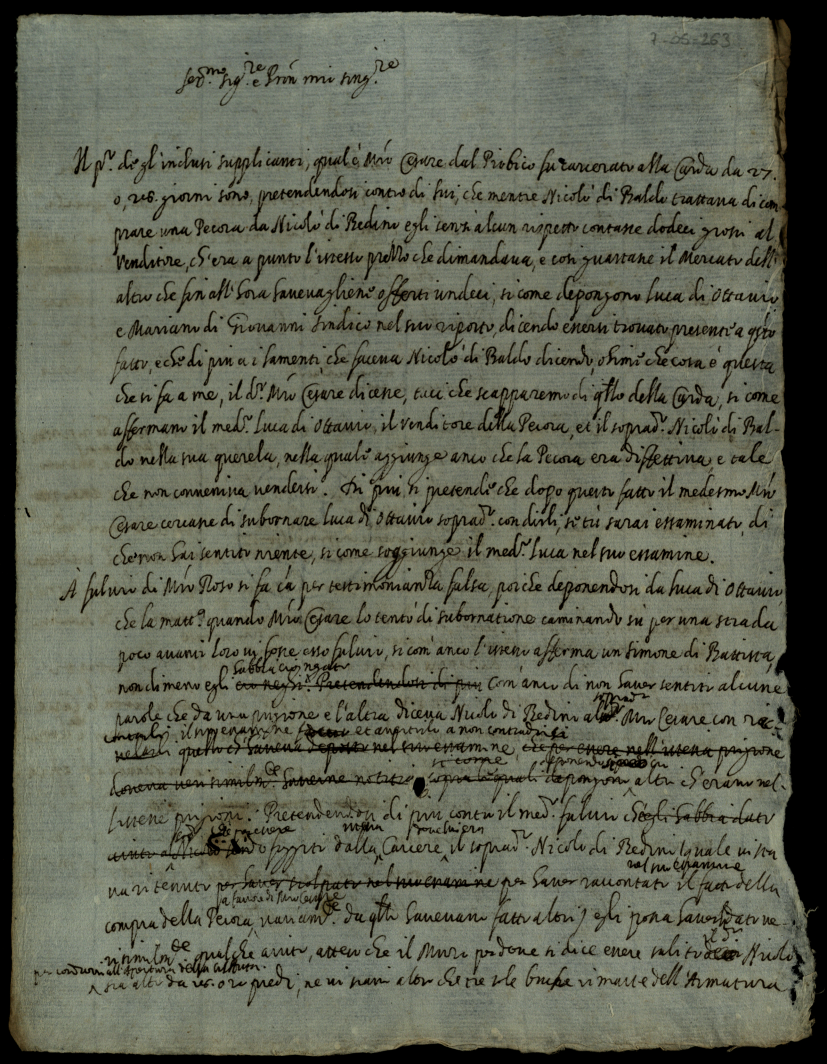 7-05-263
Ser.me Sig.re e Pron mio Sing.re
Il p.o degl'inclusi supplicanti, qual è Mro Cesare dal Piobico fu carcerato alla Carda da 27.
o, 28. giorni sono, pretendendosi contro di lui, che mentre Nicolò di Baldo trattava di com
prare una Pecora da Nicolò di Bedino egli senz'alcun rispetto contasse dodeci grossi al
Venditore, ch'era a punto l'istesso prezzo che dimandava, e così guastasse il Mercato dell'
altro che fin all'hora haveva offerti undeci, si come depongono Luca di Ottavio
e Mariano di Giovanni Sindico nel suo riporto, dicendo essersi trovato presente a q.sto
fatto, e che di più a i lamenti che faceva Nicolò di Baldo dicendo, ohimè che cosa è questa
che si fa a me, il d.o Mro Cesare dicesse, taci che scapparemo di q.llo della Carda, si come
affermano il med.o Luca di Ottavio, il Venditore della Pecora, et il soprad.o Nicolò di Bal-
do nella sua querela, nella quale aggiunge anco che la Pecora era difettiva, e tale
che non conveniva vendersi. Di più, si pretende che dopo questo fatto il medesmo Mro
Cesare cercasse di subornare Luca di Ottavio soprad.o con dirli, se tu sarai essaminato, di
che non hai sentito niente, si come soggiunge il med.o Luca nel suo essamine.
À fulvio di Mro Roso si fa c'a per testimonianza falsa, poiche deponendosi da Luca di Ottavio,
che la matt.a quando Mro Cesare lo tentò di subornatione caminando su per una strada
poco avanti loro vi fosse esso fulvio, si com'anco l'istesso afferma un Simone di Battista,
nondimeno egli l'habbia negato com'anco di non haver sentito alcune
parole che da una prigione e l'altra diceva Nicolò di Bedino al soprad.o Mro Cesare con
il suo essamine et avvertirlo a non contradirsi
questo haveva deposto nel suo essamine che per essere nell'istessa prigione
doveva verisimilm.te haverne notitia si come depongono altri ch'erano nel-
l'istesse prigioni. Pretendendosi di più contro il med.o fulvio ch'egli habbia dato
fuggito dalla Carcere il soprad.o Nicolò di Bedino (quale vi sta
va ritenuto per haver nel suo essamine raccontato il fatto della
a favore di Mro Cesare
compra della Pecora variam.te da q.llo havevano fatto altri) egli possa haver dato ve
risimilm.te qualche aiuto, atteso che il Muro per dove si dice essere salito Nicolò
per condursi all'apertura
sia alto da 18. o 20 piedi, ne vi siano altro che tre sole buche rimaste dell'Armatura